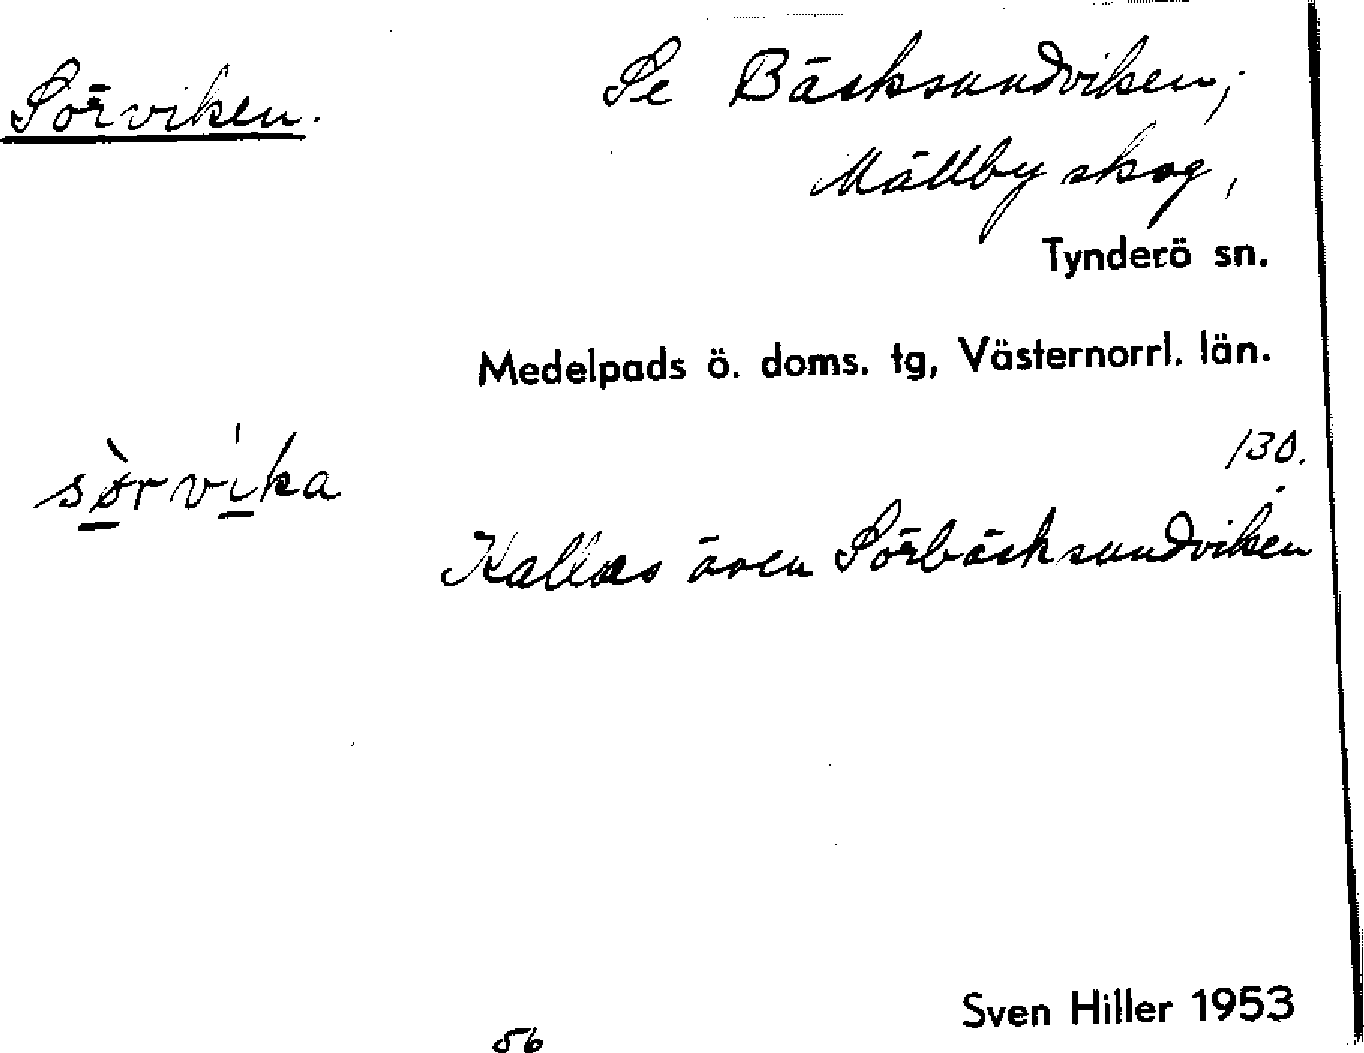 Sörviken.
Se Bäcksundviken,
Mällby skog,
Tynderö sn.
Medelpads ö. doms. tg, Västernorrl. län.
130.
sø̀rvika
Kallas även Sörbäcksundviken
Sven Hiller 1953
56